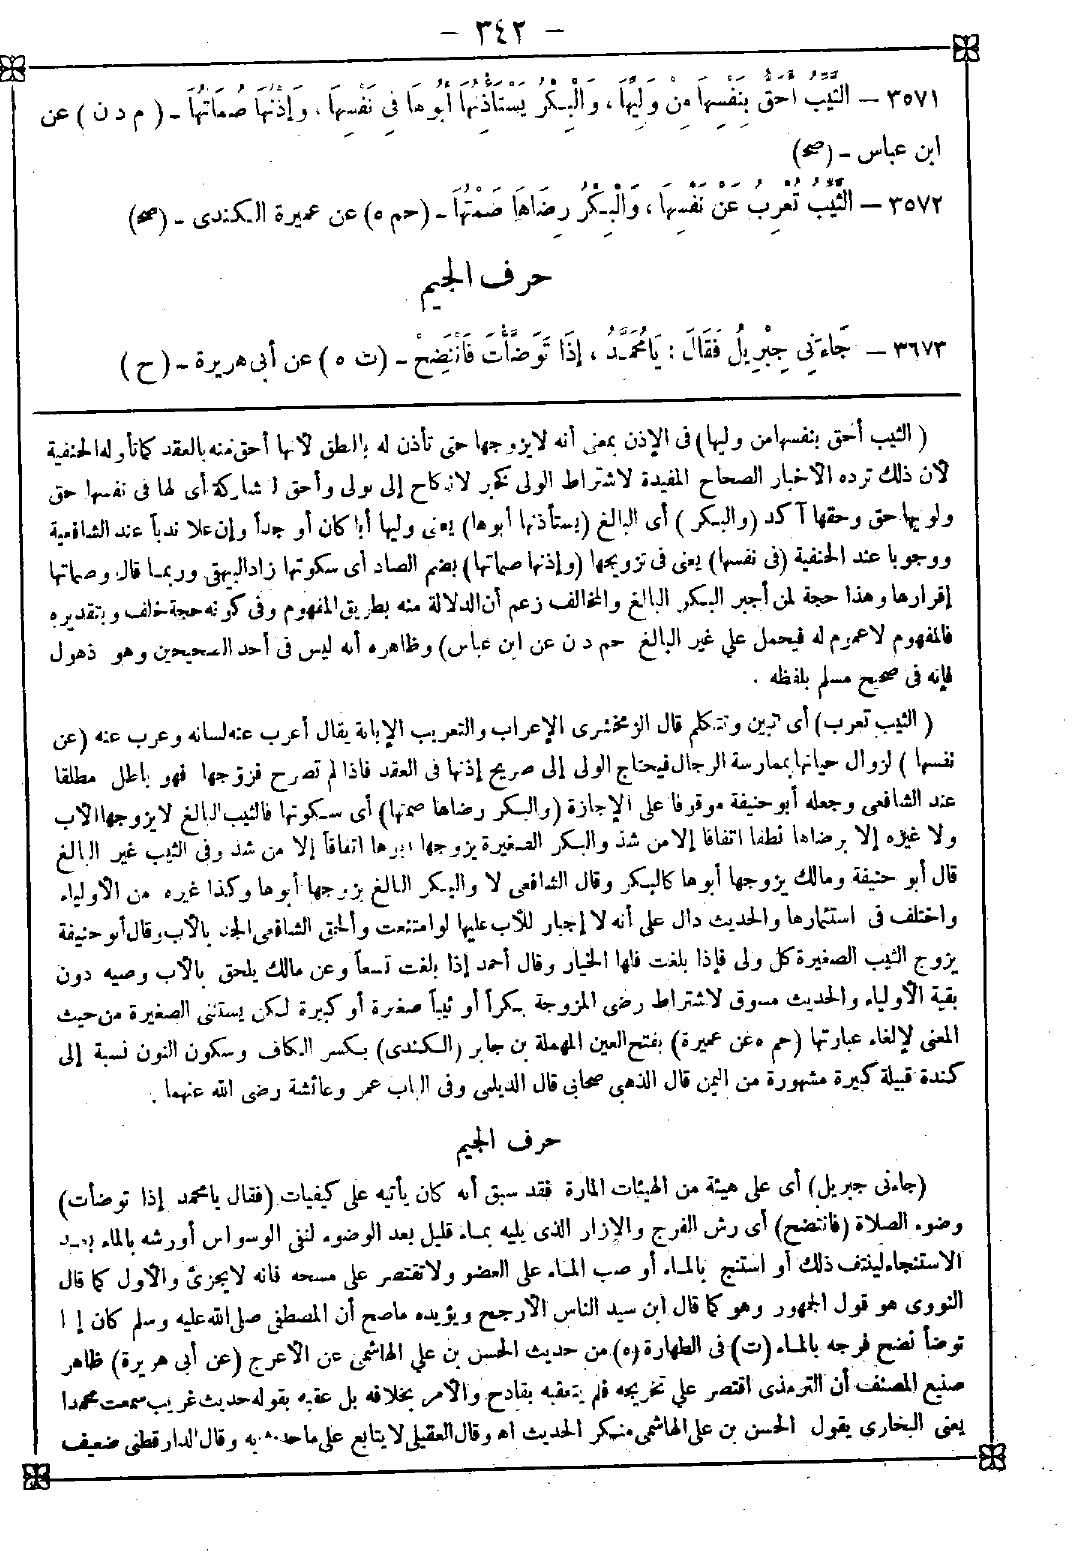 — ٣٤٢ —
٣٥٧١ — الثَّيِّبُ أَحَقُّ بِنَفْسِهَا مِنْ وَلِيِّهَا ، وَالْبِكْرُ يَسْتَأْذِنُهَا أَبُوهَا فِي نَفْسِهَا ، وَإِذْنُهَا صُمَاتُهَا — ( م د ن ) عن
ابن عباس — (صح)
٣٥٧٢ — الثَّيِّبُ تُعْرِبُ عَنْ نَفْسِهَا ، وَالْبِكْرُ رِضَاهَا صَمْتُهَا — (حم ه) عن عميرة الكندى — (صح)
حرف الجيم
٣٦٧٣ — جَاءَنِي جِبْرِيلُ فَقَالَ : يَا مُحَمَّدُ ، إِذَا تَوَضَّأْتَ فَانْتَضِحْ — (ت ه) عن أبى هريرة — (ح)
( الثيب أحق بنفسها من وليها) فى الإذن بمعنى أنه لا يزوجها حتى تأذن له بالنطق لأنها أحق منه بالعقد كما تأوله الحنفية
لأن ذلك ترده الأخبار الصحاح المفيدة لاشتراط الولى كخبر لا نكاح إلا بولى وأحق للمشاركة أى لها فى نفسها حق
ولوليها حق وحقها آكد (والبكر ) أى البالغ (يستأذنها أبوها) يعنى وليها أبا كان أو جداً وإن علا ندباً عند الشافعية
ووجوبا عند الحنفية (فى نفسها) يعنى فى تزويجها (وإذنها صماتها) بضم الصاد أى سكوتها زاد البيهقى وربما قال وصماتها
إقرارها وهذا حجة لمن أجبر البكر البالغ والمخالف زعم أن الدلالة منه بطريق المفهوم وفى كونه حجة خلف وبتقديره
فالمفهوم لا عموم له فيحمل على غير البالغ حم د ن عن ابن عباس) وظاهره أنه ليس فى أحد الصحيحين وهو ذهول
فإنه فى صحيح مسلم بلفظه .
( الثيب تعرب) أى تبين وتتكلم قال الزمخشرى الإعراب والتعريب الإبانة يقال أعرب عنه لسانه وعرب عنه (عن
نفسها ) لزوال حيائها بممارسة الرجال فيحتاج الولى إلى صريح إذنها فى العقد فاذا لم تصرح فزوجها فهو باطل مطلقا
عند الشافعى وجعله أبو حنيفة موقوفا على الإجازة (والبكر رضاها صمتها) أى سكوتها فالثيب البالغ لا يزوجها الأب
ولا غيره إلا برضاها نطقا اتفاقا إلا من شذ والبكر الصغيرة يزوجها أبوها اتفاقا إلا من شذ وفى الثيب غير البالغ
قال أبو حنيفة ومالك يزوجها أبوها كالبكر وقال الشافعى لا والبكر البالغ يزوجها أبوها وكذا غيره من الأولياء
واختلف فى استئمارها والحديث دال على أنه لا إجبار للأب عليها لو امتنعت وألحق الشافعى الجد بالأب وقال أبو حنيفة
يزوج الثيب الصغيرة كل ولى فإذا بلغت فلها الخيار وقال أحمد إذا بلغت تسعاً وعن مالك يلحق بالأب وصيه دون
بقية الأولياء والحديث مسوق لاشتراط رضى المزوجة بكراً أو ثيباً صغيرة أو كبيرة لكن يستثنى الصغيرة من حيث
المعنى لإلغاء عبارتها (حم ه عن عميرة) بفتح العين المهملة بن جابر (الكندى) بكسر الكاف وسكون النون نسبة إلى
كندة قبيلة كبيرة مشهورة من اليمن قال الذهبى صحابى قال الديلمى وفى الباب عمر وعائشة رضى الله عنهما .
حرف الجيم
(جاءنى جبريل) أى على هيئة من الهيئات المارة فقد سبق أنه كان يأتيه على كيفيات (فقال يا محمد إذا توضأت)
وضوء الصلاة (فانتضح) أى رش الفرج والإزار الذى يليه بماء قليل بعد الوضوء لنفى الوسواس أورشه بالماء بعد
الاستنجاء لينتف ذلك أو استنج بالماء أو صب الماء على العضو ولا تقتصر على مسحه فانه لا يجزئ والأول كما قال
النووى هو قول الجمهور وهو كما قال ابن سيد الناس الأرجح ويؤيده ما صح أن المصطفى صلى الله عليه وسلم كان إذا
توضأ نضح فرجه بالماء (ت) فى الطهارة (ه) من حديث الحسن بن على الهاشمى عن الأعرج (عن أبى هريرة) ظاهر
صنيع المصنف أن الترمذى اقتصر على تخريجه فلم يتعقبه بقادح والأمر بخلافه بل عقبه بقوله حديث غريب سمعت محمدا
يعنى البخارى يقول الحسن بن على الهاشمى منكر الحديث اه وقال العقيلى لا يتابع على ما حدث به وقال الدارقطنى ضعيف